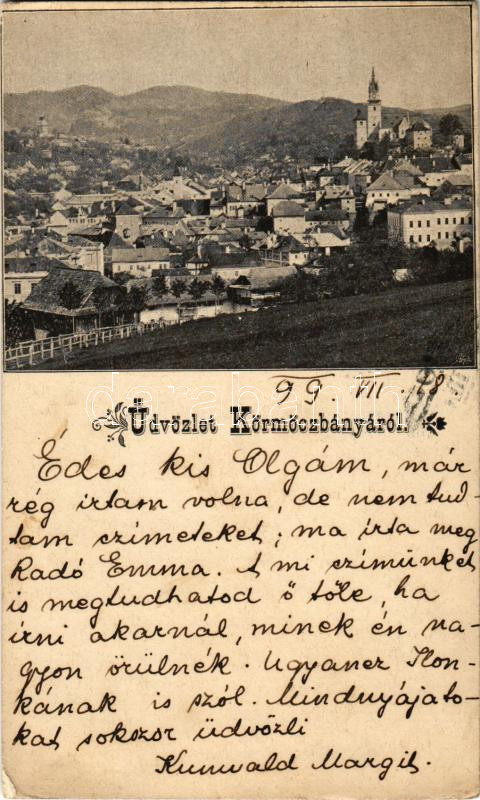 99. VII. 8
Üdvözlet Körmöczbányáról.
Édes kis Olgám, már
rég irtam volna, de nem tud-
tam czimeteket; ma irta meg
Radó Emma. A mi czimünket
is megtudhatod ő tőle, ha
irni akarnál, minek én na-
gyon örülnék. Ugyanez Ilon-
kának is szól. Mindnyájato-
kat sokszor üdvözli
Kunwald Margit.
darabanth.com